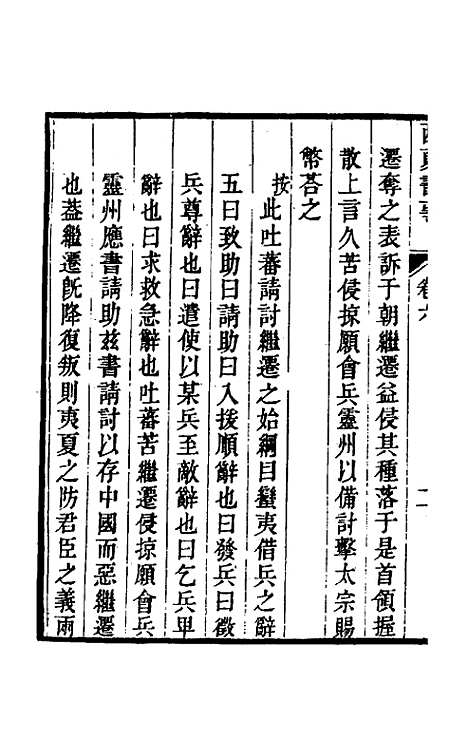 西夏書事
卷六
遷奪之表訴于朝繼遷益侵其種落于是首領握
散上言久苦侵掠願會兵靈州以備討擊太宗賜
幣荅之
按此吐蕃請討繼遷之始綱目蠻夷借兵之辭
五曰致助曰請助曰入援順辭也曰發兵曰徵
兵尊辭也曰遣使以某兵至敵辭也曰乞兵卑
辭也曰求救急辭也吐蕃苦繼遷侵掠願會兵
靈州應書請助兹書請討以存中國而惡繼遷
也葢繼遷旣降復叛則夷夏之防君臣之義兩